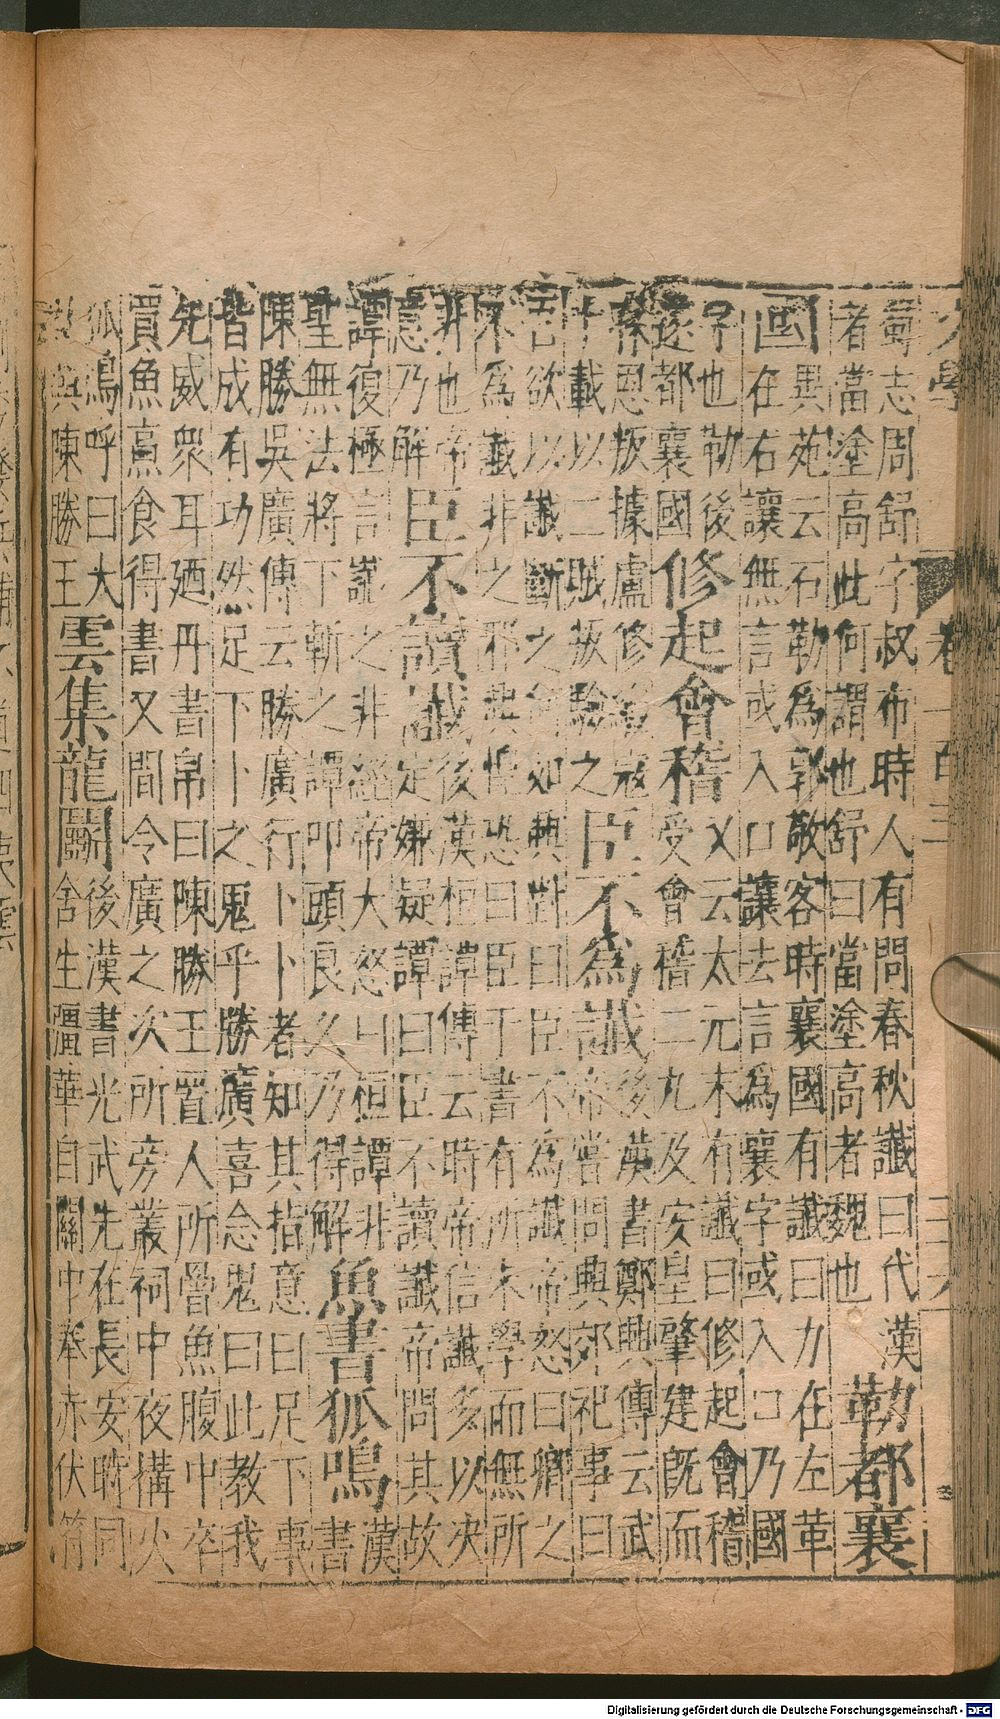 蜀志周舒字叔布時人有問春秋讖曰代漢
者當塗高此何謂也舒曰當塗高者魏也
勒都襄
國
異苑云石勒為郭敬客時襄國有讖曰力在左革
在右讓無言或入口讓去言為襄字或入口乃國
字也勒後
遂都襄國
修起會稽
又云太元末有讖曰修起會稽
受會稽二九及安皇肇建既而
孫恩叛據盧修繼寇
十載以二賊叛驗之
臣不為讖
後漢書鄭興傳云武
帝嘗問興郊祀事曰
吾欲以讖斷之何如興對曰臣不為讖帝怒曰卿之
不為讖非之邪興惶恐曰臣于書有所未學而無所
非也帝
意乃解
臣不讀讖
後漢桓譚傳云時帝信讖多以決
定嫌疑譚曰臣不讀讖帝問其故
譚復極言讖之非經帝大怒曰桓譚非
聖無法將下斬之譚叩頭良久乃得解
魚書狐鳴
漢
書
陳勝吳廣傳云勝廣行卜卜者知其指意曰足下事
皆成有功然足下卜之鬼乎勝廣喜念鬼曰此教我
先威衆耳廼丹書帛曰陳勝王置人所罾魚腹中卒
買魚烹食得書又間令廣之次所旁叢祠中夜構火
狐鳴呼曰大
楚興陳勝王
雲集龍鬭
後漢書光武先在長安時同
舍生彊華自關中奉赤伏符
Digitalisierung gefördert durch die Deutsche Forschungsgemeinschaft - DFG